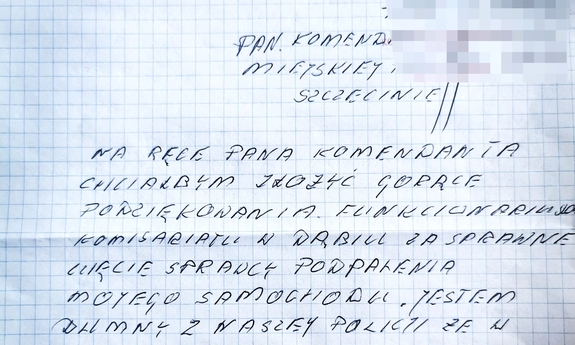 PAN. KOMEND
MIEJSKIEJ
SZCZECINIE
NA RĘCE PANA KOMENDANTA
CHCIAŁBYM ZŁOŻYĆ GORĄCE
PODZIĘKOWANIA. FUNKCJONARIUSZO
KOMISARIATU W DĄBIU ZA SPRAWNE
UJĘCIE SPRAWCY PODPALENIA
MOJEGO SAMOCHODU. JESTEM
DUMNY Z NASZEJ POLICJI ŻE W